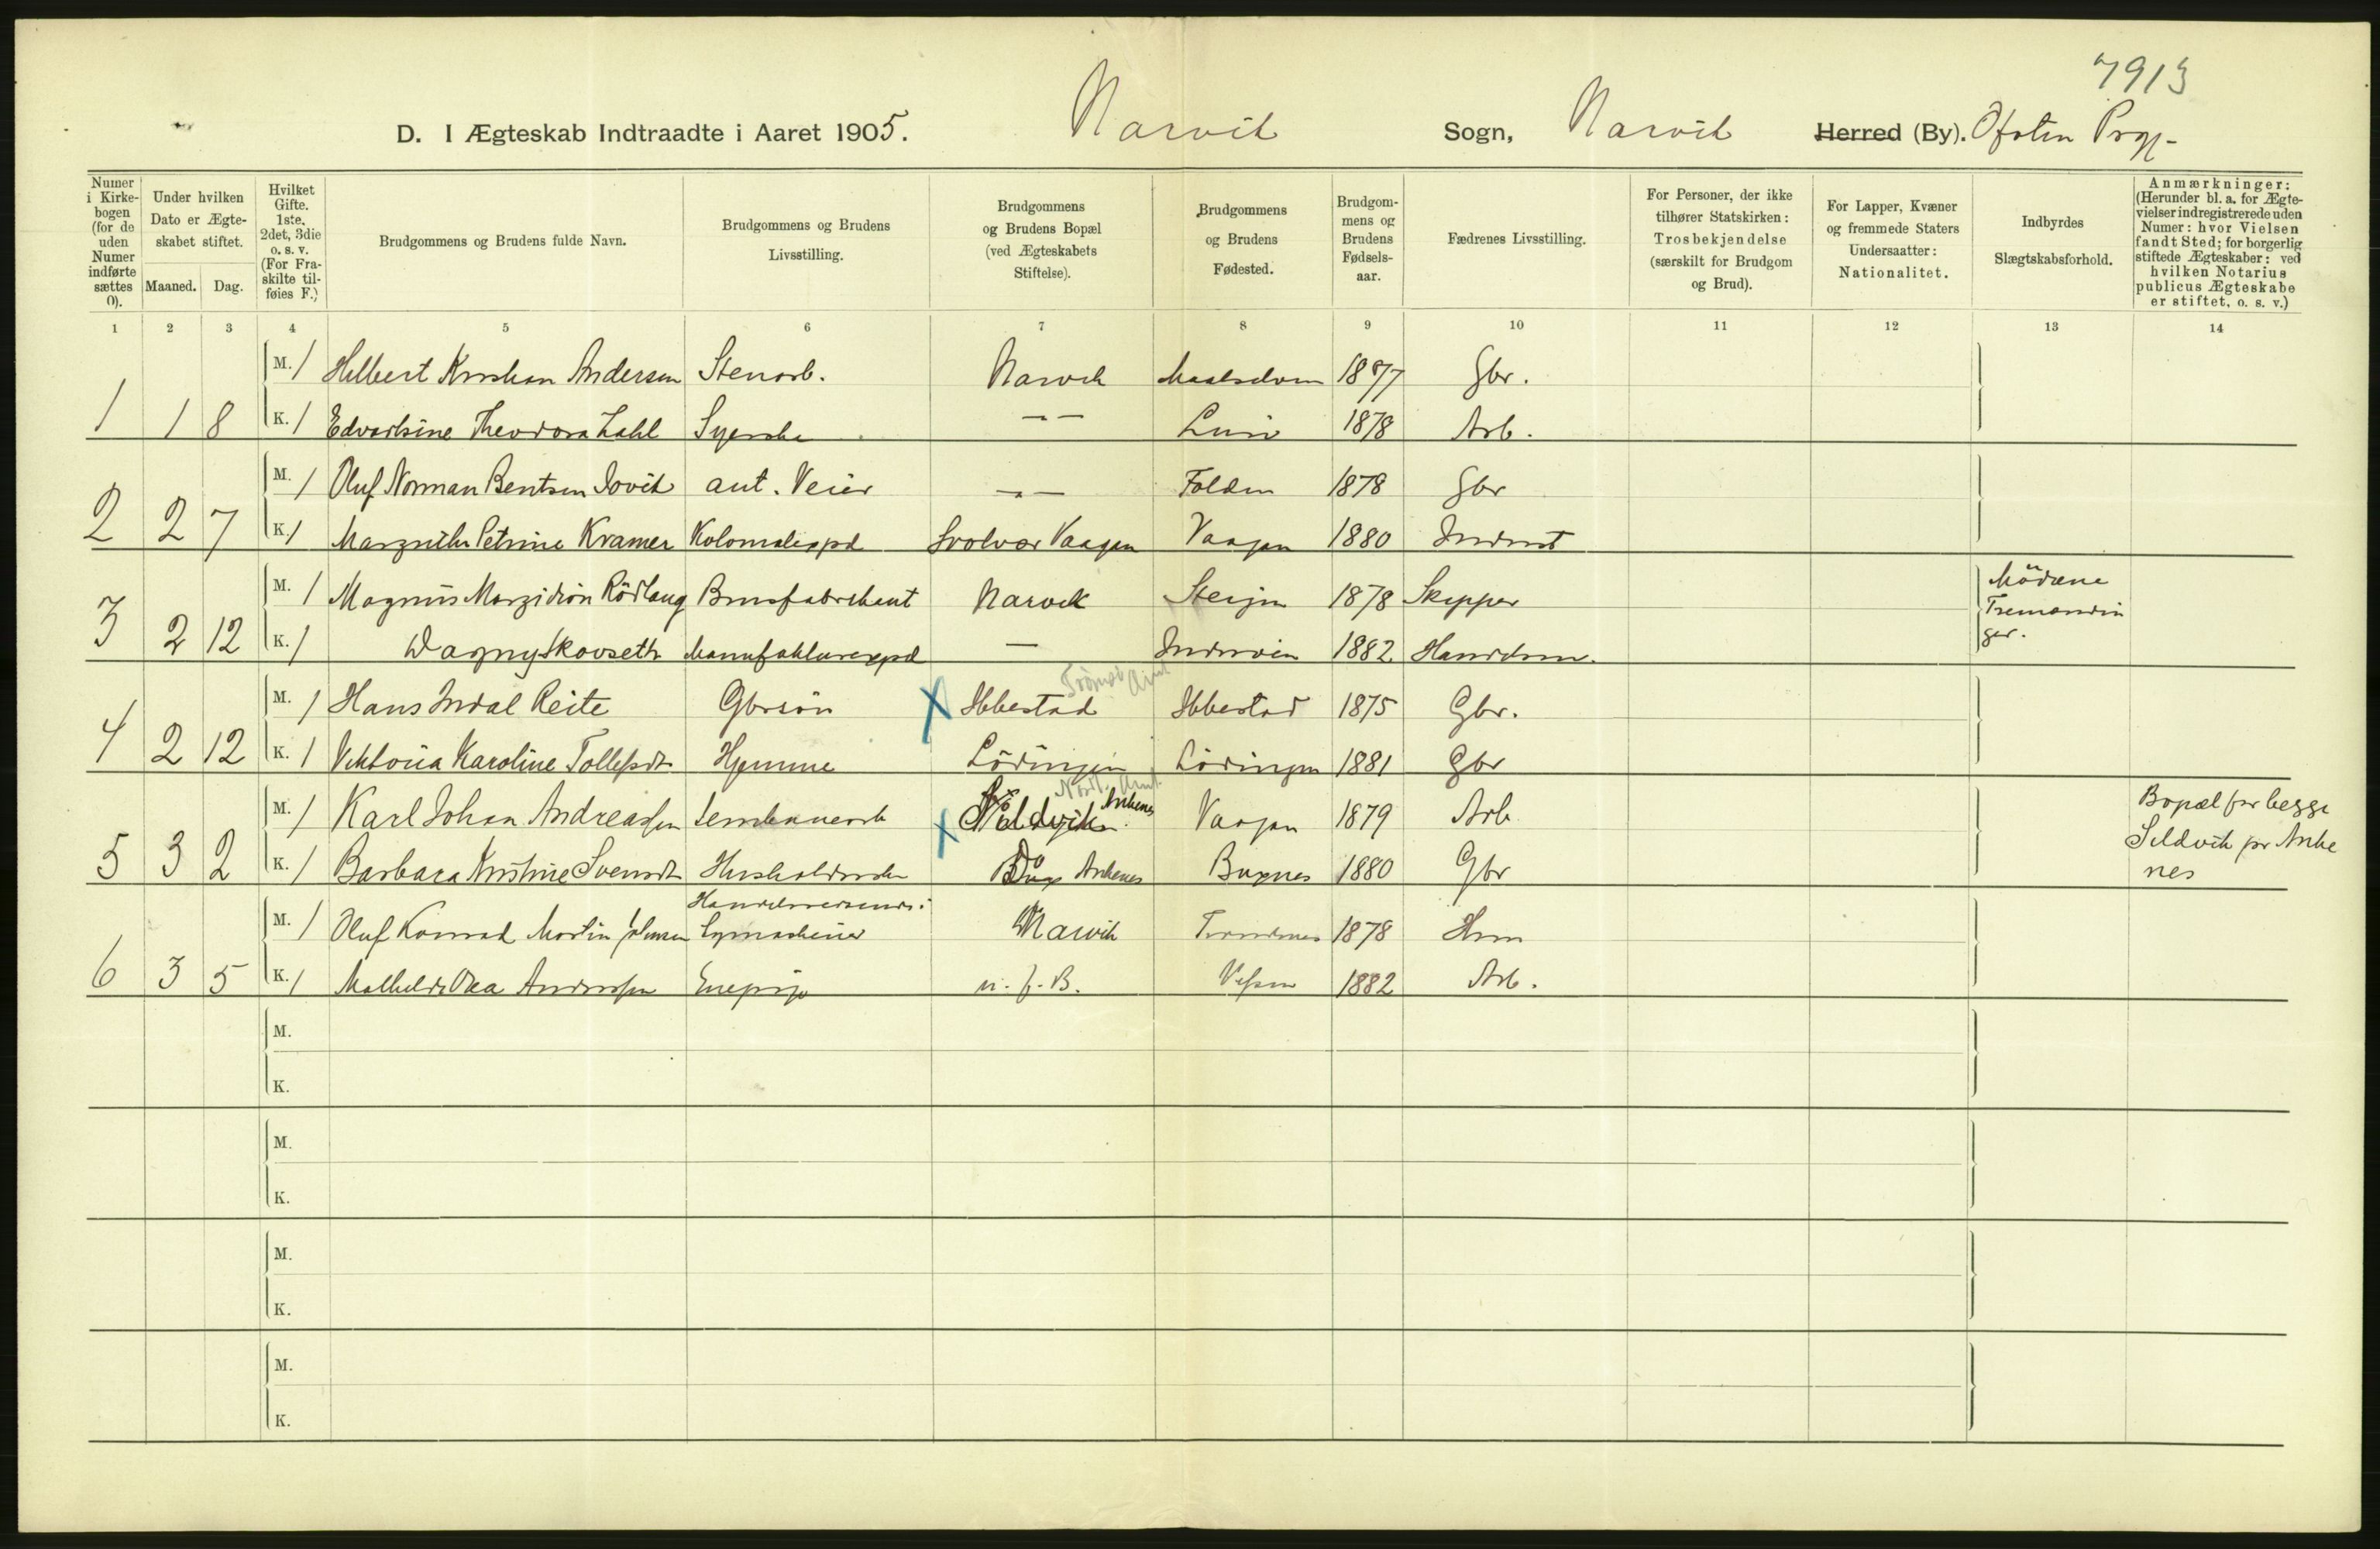 7913
D. I Ægteskab Indtraadte i Aaret 1905. Narvik Sogn, Narvik Herred (By). Ofoten Prgj.
Numer i Kirke-bogen (for de uden Numer indførte sættes 0).
Under hvilken Dato er Ægte-skabet stiftet.
Maaned. Dag.
Hvilket Gifte. 1ste, 2det, 3die o. s. v. (For Fra-skilte til-føies F.)
Brudgommens og Brudens fulde Navn.
Brudgommens og Brudens Livsstilling.
Brudgommens og Brudens Bopæl (ved Ægteskabets Stiftelse).
Brudgommens og Brudens Fødested.
Brudgom-mens og Brudens Fødsels-aar.
Fædrenes Livsstilling.
For Personer, der ikke tilhører Statskirken: Trosbekjendelse (særskilt for Brudgom og Brud).
For Lapper, Kvæner og fremmede Staters Undersaatter: Nationalitet.
Indbyrdes Slægtskabsforhold.
Anmærkninger: (Herunder bl. a. for Ægte-vielser indregistrerede uden Numer: hvor Vielsen fandt Sted; for borgerlig stiftede Ægteskaber: ved hvilken Notarius publicus Ægteskabe er stiftet, o. s. v.)
1 2 3 4 5 6 7 8 9 10 11 12 13 14
M. 1 Helbert Kristian Andersen Stenarb. Narvik Maalselven 1877 Gbr.
1 1 8 K. 1 Edvardsine Theodora Zahl Syerske — — Lurø 1878 Arb.
M. 1 Oluf Norman Bentsen Jovik ant. Veier — — Folden 1878 Gbr
2 2 7 K. 1 Margrethe Petrine Kramer Kolonialexpd Svolvær Vaagan Vaagan 1880
M. 1 Magnus Rödtang Brusfabrikant Narvik Steigen 1878 Skipper Mödrene
Tremenin
ger.
3 2 12 K. 1 Dagny Skovseth Manufakturexpd — Inderøen 1882 Handelsm.
Tromsø Amt
M. 1 Hans Indal Reite Gbrsön Ibbestad Ibbestad 1875 Gbr.
4 2 12 K. 1 Viktoria Karoline Tollefsdt Hjemme Lödingen Lödingen 1881 Gbr
Nordl. Amt.
M. 1 Karl Johan Andreassen Jernbanearb Sildvik Ankenes Vaagan 1879 Arb Bopæl for begge
Sildvik pr Anke
nes
5 3 2 K. 1 Barbara Kristine Svensdt Husholderske Do Ankenes Buxnes 1880 Gbr
Handelsreisende i
M. 1 Oluf Konrad Martin Johnsen Symaskiner Narvik Trondenes 1878 Hsm
6 3 5 K. 1 Mathilde Oea Andersen Enepige u. f. B. Vefsen 1882 Arb.
M.
K.
M.
K.
M.
K.
M.
K.